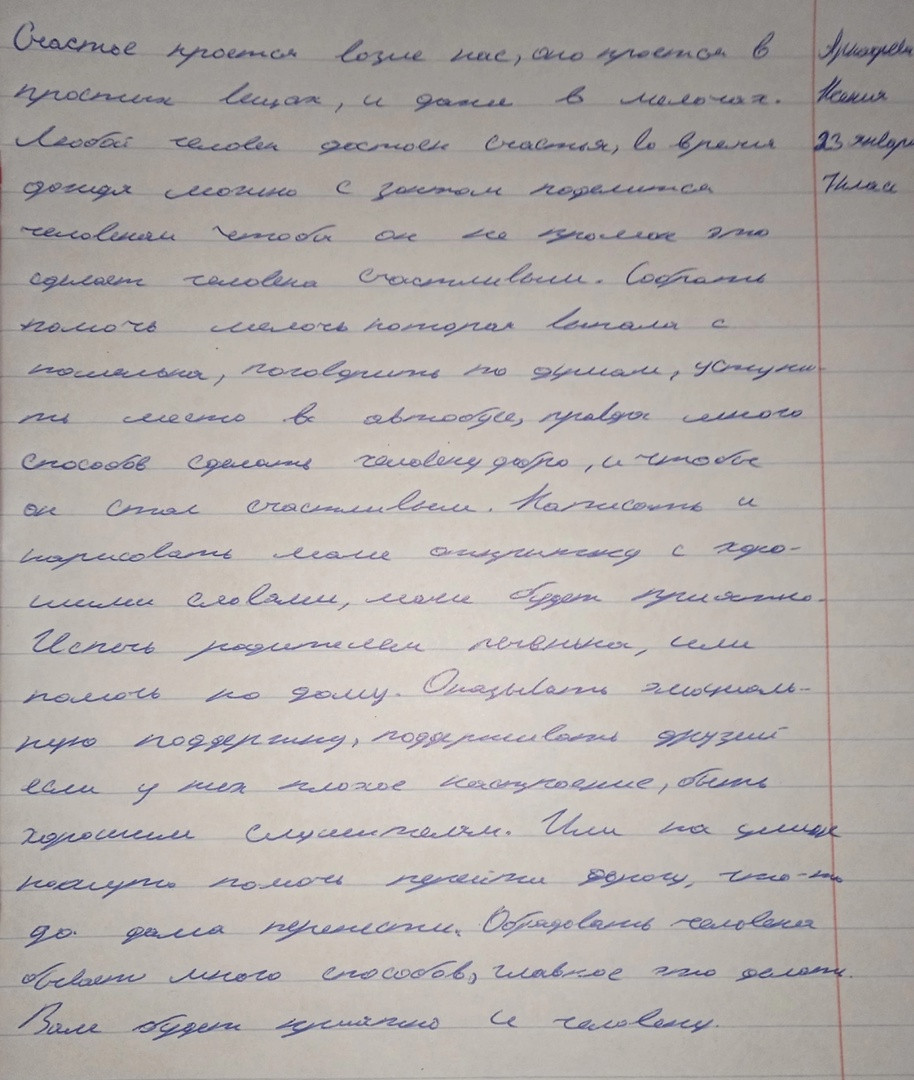 Счастье кроется возле нас, оно кроется в
простых вещах, и даже в мелочах.
Любой человек достоен счастья, во время
дождя можно с зонтом поделится
человеком чтобы он не промок это
сделает человека счастливым. Собрать
помочь мелочь которая выпала с
кошелька, поговорить по душам, уступи-
ть место в автобусе, правда много
способов сделать человеку добро, и чтобы
он стал счастливым. Написать и
нарисовать маме открытку с хоро-
шими словами, маме будет приятно.
Испечь родителям печенька, или
помочь по дому. Оказывать эмоциаль-
ную поддержку, поддерживать друзей
если у них плохое настроение, быть
хорошим слушителям. Или на улице
помочь перейти дорогу, что-то
до дома перенести. Обрадовать человека
бывает много способов, главное это делать.
Вам будет приятно и человеку.
Ксения
23 январь
7класс